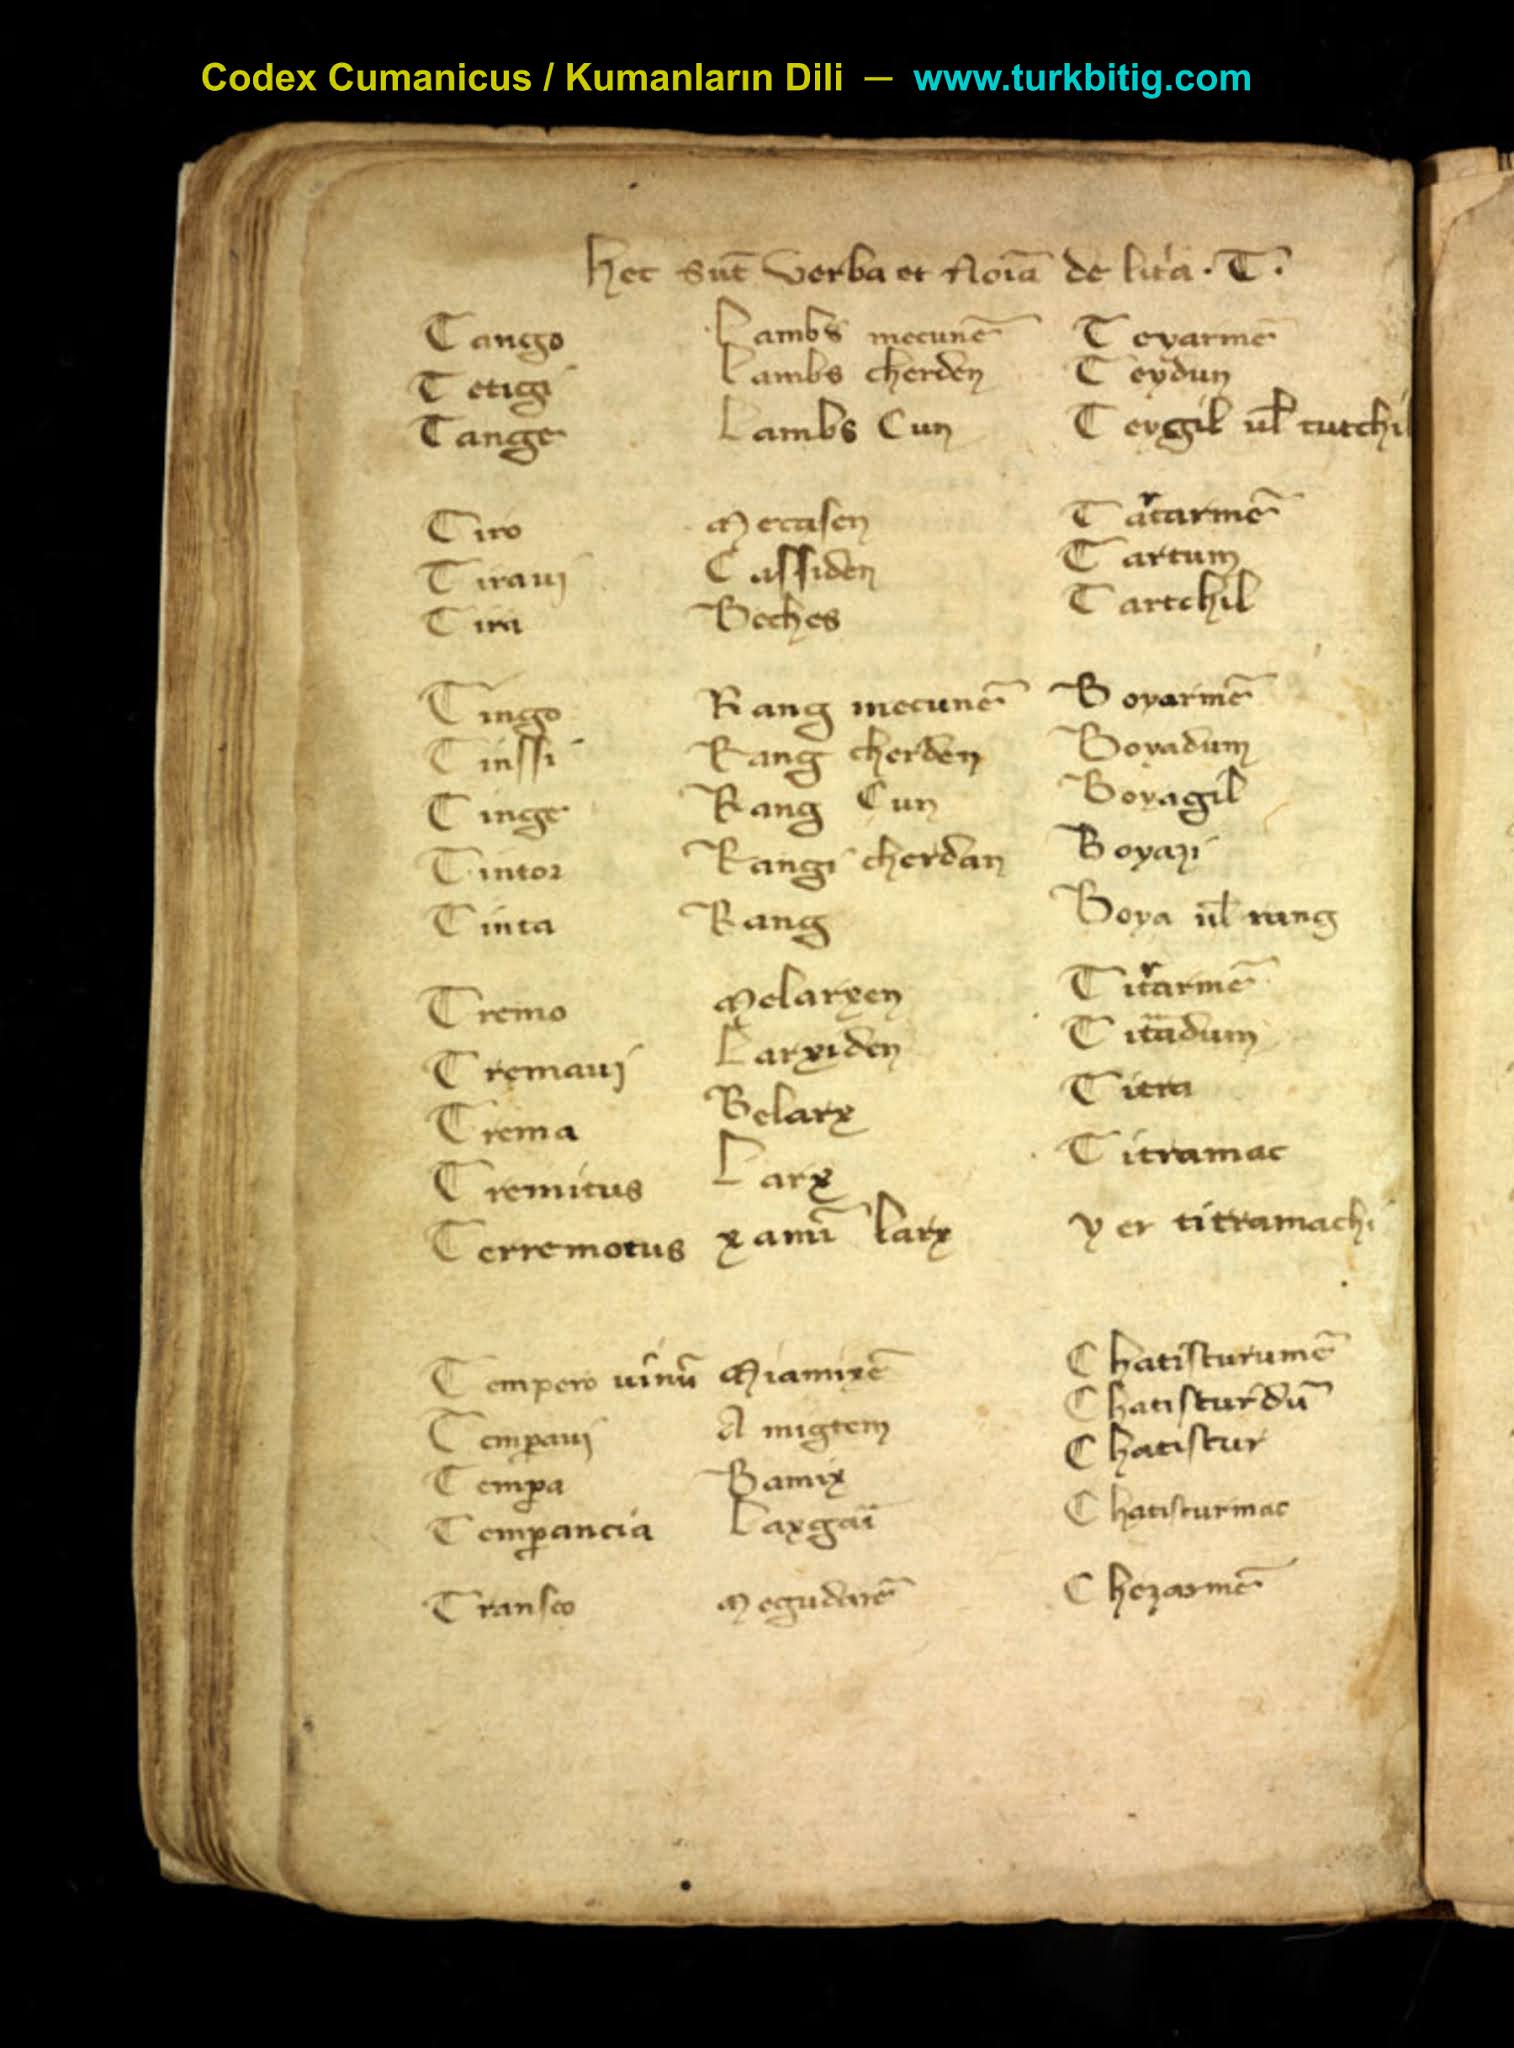 Codex Cumanicus / Kumanların Dili — www.turkbitig.com
hec sūt verba et noīa de lit'a · T ·
Tango Lambs mecunē Teyarmē
Tetigi Lambs cherden Teydun
Tange Lambs Cun Teygil ul' tutchil
Tiro Mecasen Tartarmē
Tiraui Cassiden Tartum
Tira Beches Tartchil
Tingo Rang mecunē Boyarmē
Tinssi Rang cherden Boyadum
Tinge Rang Cun Boyagil
Tintor Rangi cherdan Boyazi
Tinta Rang Boya ul' rang
Tremo Melarxen Titrarmē
Tremaui Larxiden Titradum
Trema Belarx Titra
Tremitus Larx Titramac
Terremotus xamī larx yer titramachi
Tempero uīnū Miamixē Chatisturumē
Temp̄aui Amigtem Chatisturdū
Temp̄a Bamix Chatistur
Temp̄ancia Laxgaī Chatisturmac
Transeo Megudarē Chezarmē